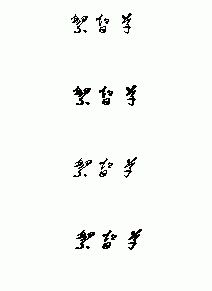 黎智英
黎智英
黎智英
黎智英